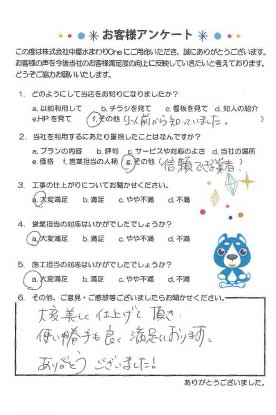 お客様アンケート
この度は株式会社中屋水まわりOneにご用命いただき、誠にありがとうございます。
お客様の声を今後当社のお客様満足度の向上に反映していきたいと考えております。
どうぞご協力お願いいたします。
1. どのようにして当店をお知りになりましたか？
a. 以前利用して b. チラシを見て c. 看板を見て d. 知人の紹介
e.HPを見て f. その他（以前から知っていました。）
2. 当社を利用するにあたり重視したことはなんですか？
a. プランの内容 b. 評判 c. サービスや対応のよさ d. 当社の場所
e. 価格 f. 営業担当の人柄 g. その他（信頼できる業者）
3. 工事の仕上がりについてお聞かせください。
a. 大変満足 b. 満足 c. やや不満 d. 不満
4. 営業担当の対応はいかがでしたでしょうか？
a. 大変満足 b. 満足 c. やや不満 d. 不満
5. 施工担当の対応はいかがでしたでしょうか？
a. 大変満足 b. 満足 c. やや不満 d. 不満
6. その他、ご意見・ご感想等ございましたらお聞かせください。
大変美しく仕上げて頂き
使い勝手も良く満足しております。
ありがとうございました！
ありがとうございました。